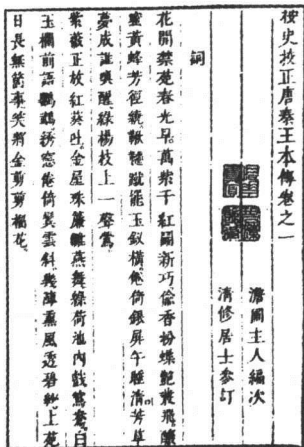 按史校正唐秦王本傳卷之一
澹圃主人編次
清修居士參訂
詞
花開禁苑春光早萬紫千紅鬬新巧偷香粉蝶艷裳飛釀
蜜黃蜂芳徑繞鞦韆蹴罷玉釵橫倦倚銀屏午睡清芳草
夢成誰喚醒綠楊枝上一聲鶯
紫薇正放紅葵吐金屋珠簾雛燕舞綠荷池內戲鴛鴦白
玉欄前語鸚鵡綉窓倦倚鬢雲斜幾陣薰風透碧紗上苑
日長無箇事笑將金剪剪榴花